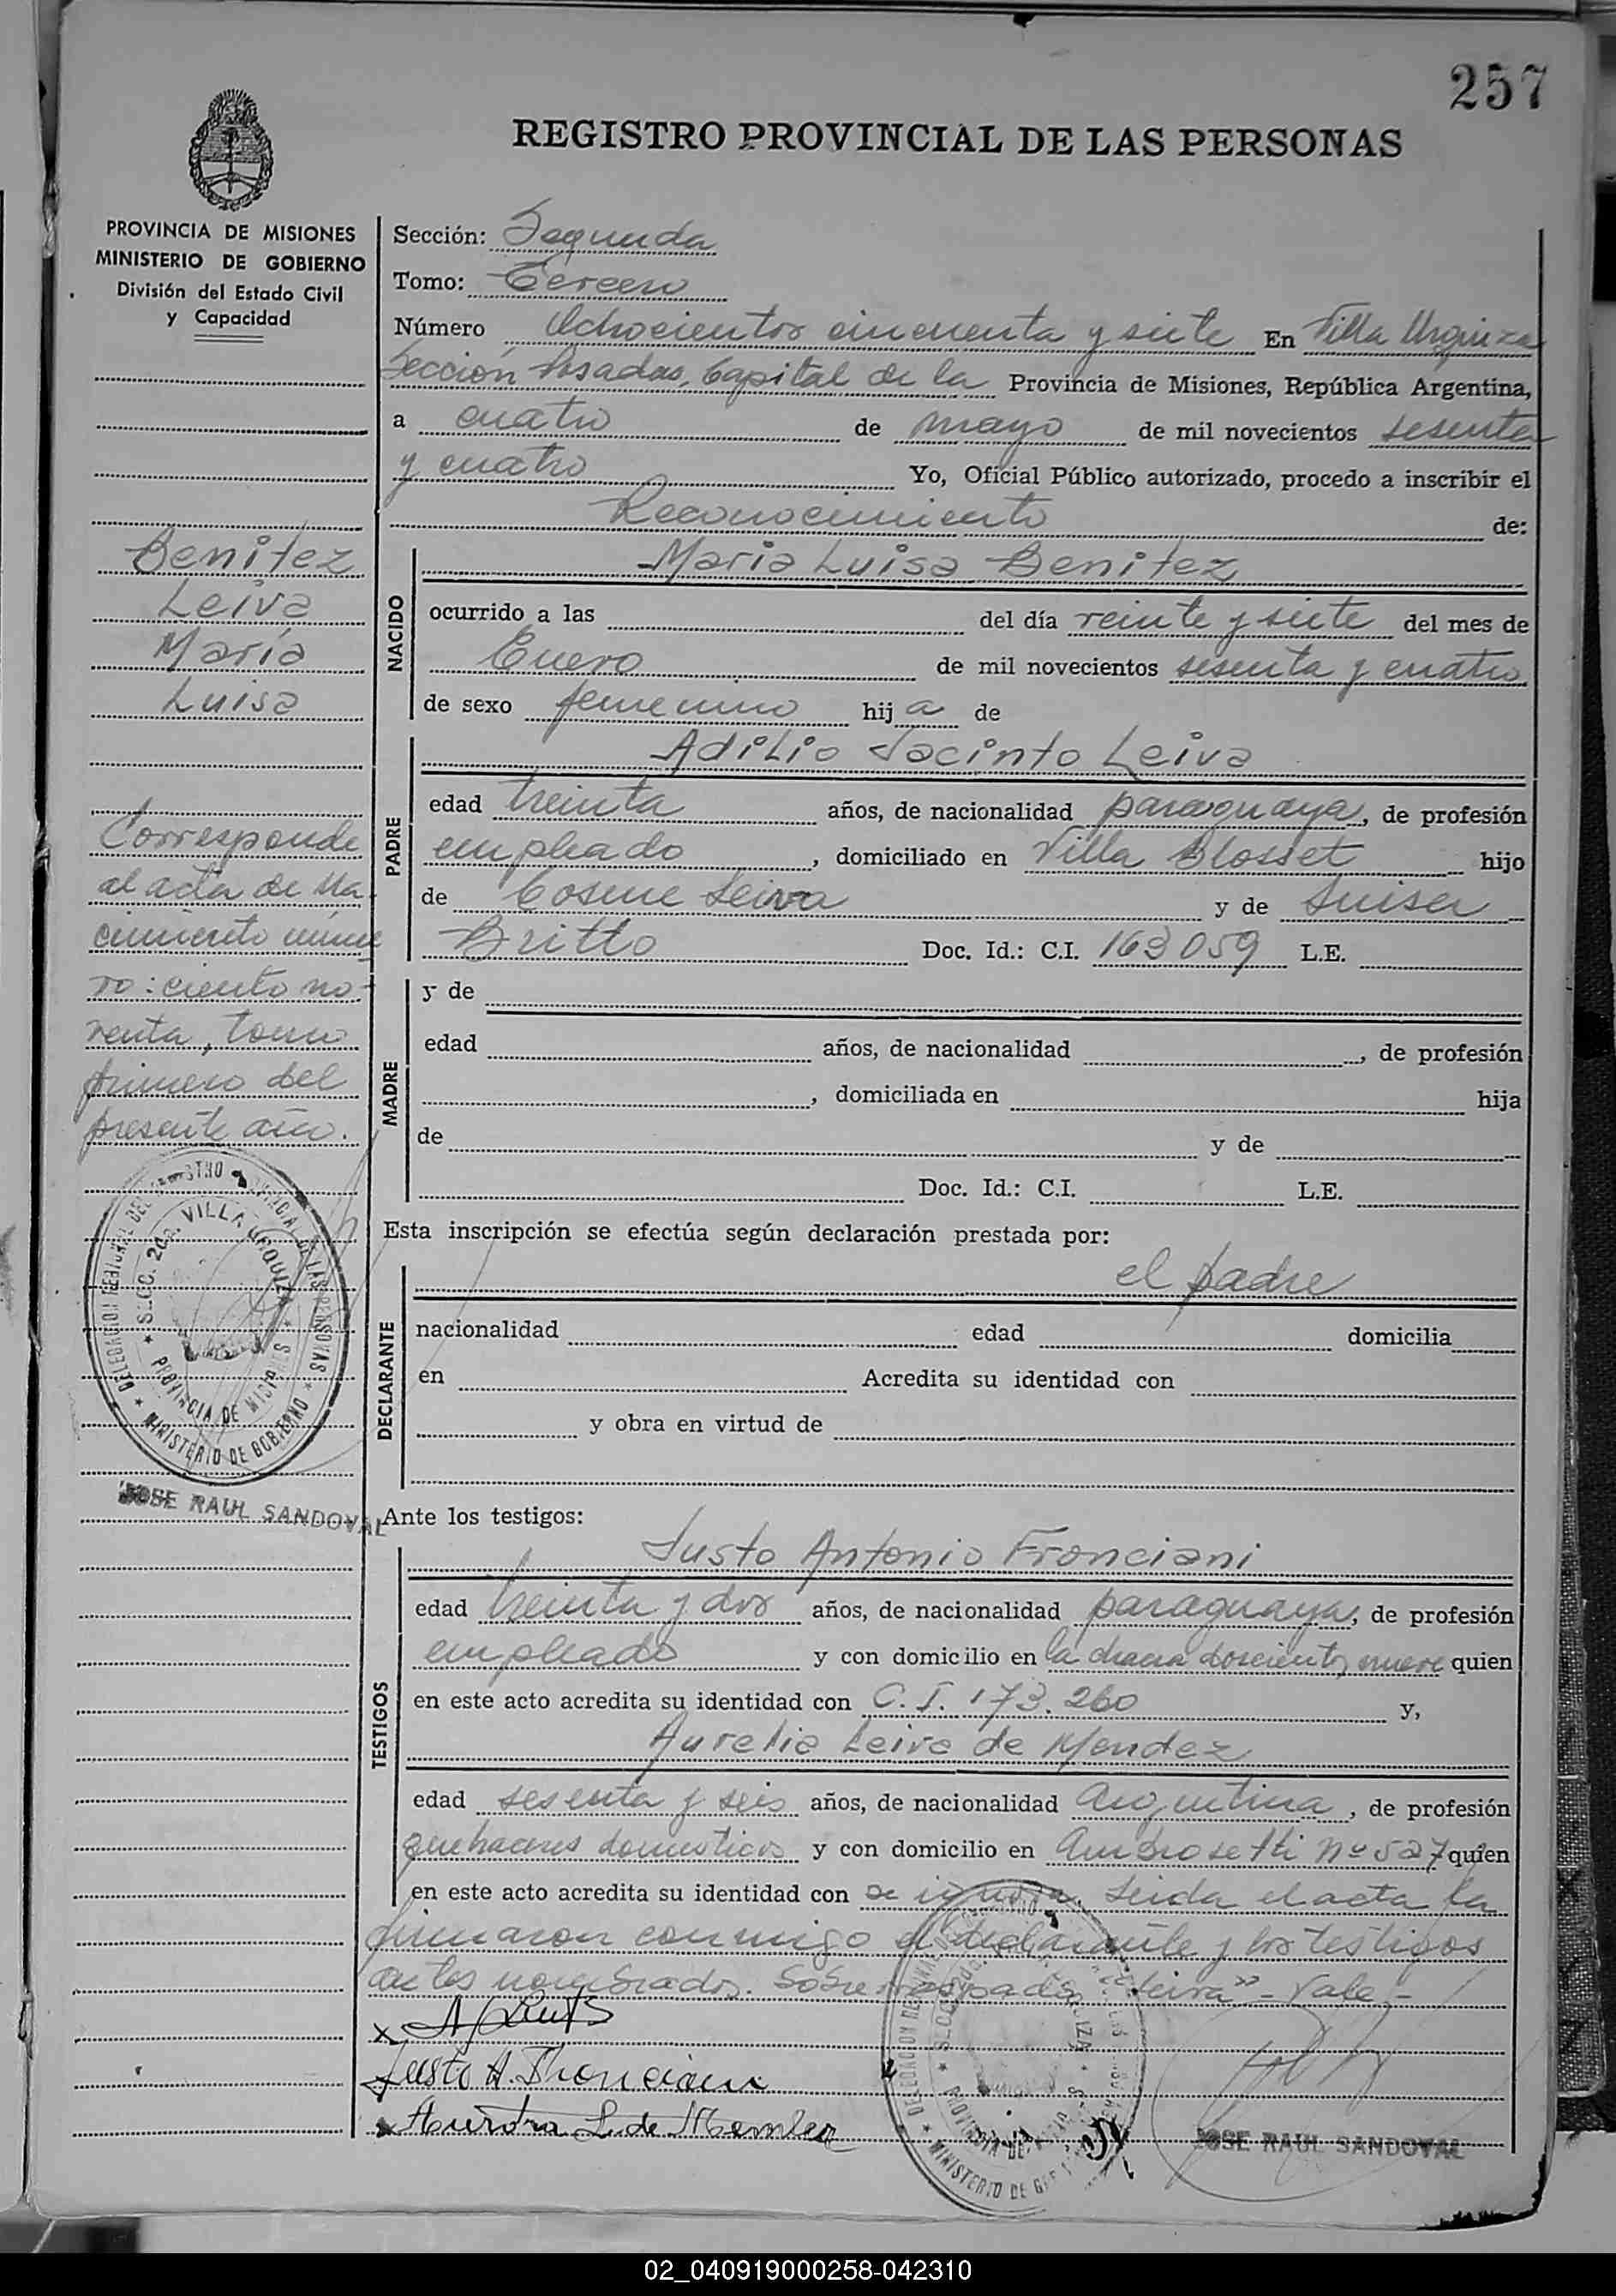 257
REGISTRO PROVINCIAL DE LAS PERSONAS
PROVINCIA DE MISIONES
MINISTERIO DE GOBIERNO
División del Estado Civil
y Capacidad
Sección: Segunda
Tomo: Tercero
Número Ochocientos cincuenta y siete En Villa Urquiza
Sección Posadas, Capital de la Provincia de Misiones, República Argentina,
a cuatro de mayo de mil novecientos sesenta
y cuatro Yo, Oficial Público autorizado, procedo a inscribir el
Reconocimiento de:
Benitez
Leiva
María
Luisa
Corresponde
al acta de Na-
cimiento núme
ro: ciento no-
venta, tomo
primero del
presente año.
SECC. 2da. VILLA URQUIZA
PROVINCIA DE MISIONES
MINISTERIO DE GOBIERNO
JOSE RAUL SANDOVAL
NACIDO
Maria Luisa Benitez
ocurrido a las del día veinte y siete del mes de
Enero de mil novecientos sesenta y cuatro
de sexo femenino hija de
PADRE
Adilio Jacinto Leiva
edad treinta años, de nacionalidad paraguaya, de profesión
empleado, domiciliado en Villa Blosset hijo
de Cosme Leiva y de Luisa
Britto Doc. Id.: C.I. 163059 L.E.
MADRE
y de
edad años, de nacionalidad , de profesión
, domiciliada en hija
de y de
Doc. Id.: C.I. L.E.
Esta inscripción se efectúa según declaración prestada por:
DECLARANTE
el padre
nacionalidad edad domicilia
en Acredita su identidad con
y obra en virtud de
Ante los testigos:
TESTIGOS
Justo Antonio Fronciani
edad treinta y dos años, de nacionalidad paraguaya, de profesión
empleado y con domicilio en la chacra doscientos nueve quien
en este acto acredita su identidad con C.I. 173.260 y,
Aurelia Leiva de Mendez
edad sesenta y seis años, de nacionalidad Argentina, de profesión
quehaceres domesticos y con domicilio en Ambrosetti Nº 527 quien
en este acto acredita su identidad con se ignora. Leida el acta la
firmaron conmigo el declarante y los testigos
antes nombrados. Sobre raspado: "Leiva" - Vale -
Justo A. Fronciani
L. de Mendez
JOSE RAUL SANDOVAL
02_040919000258-042310